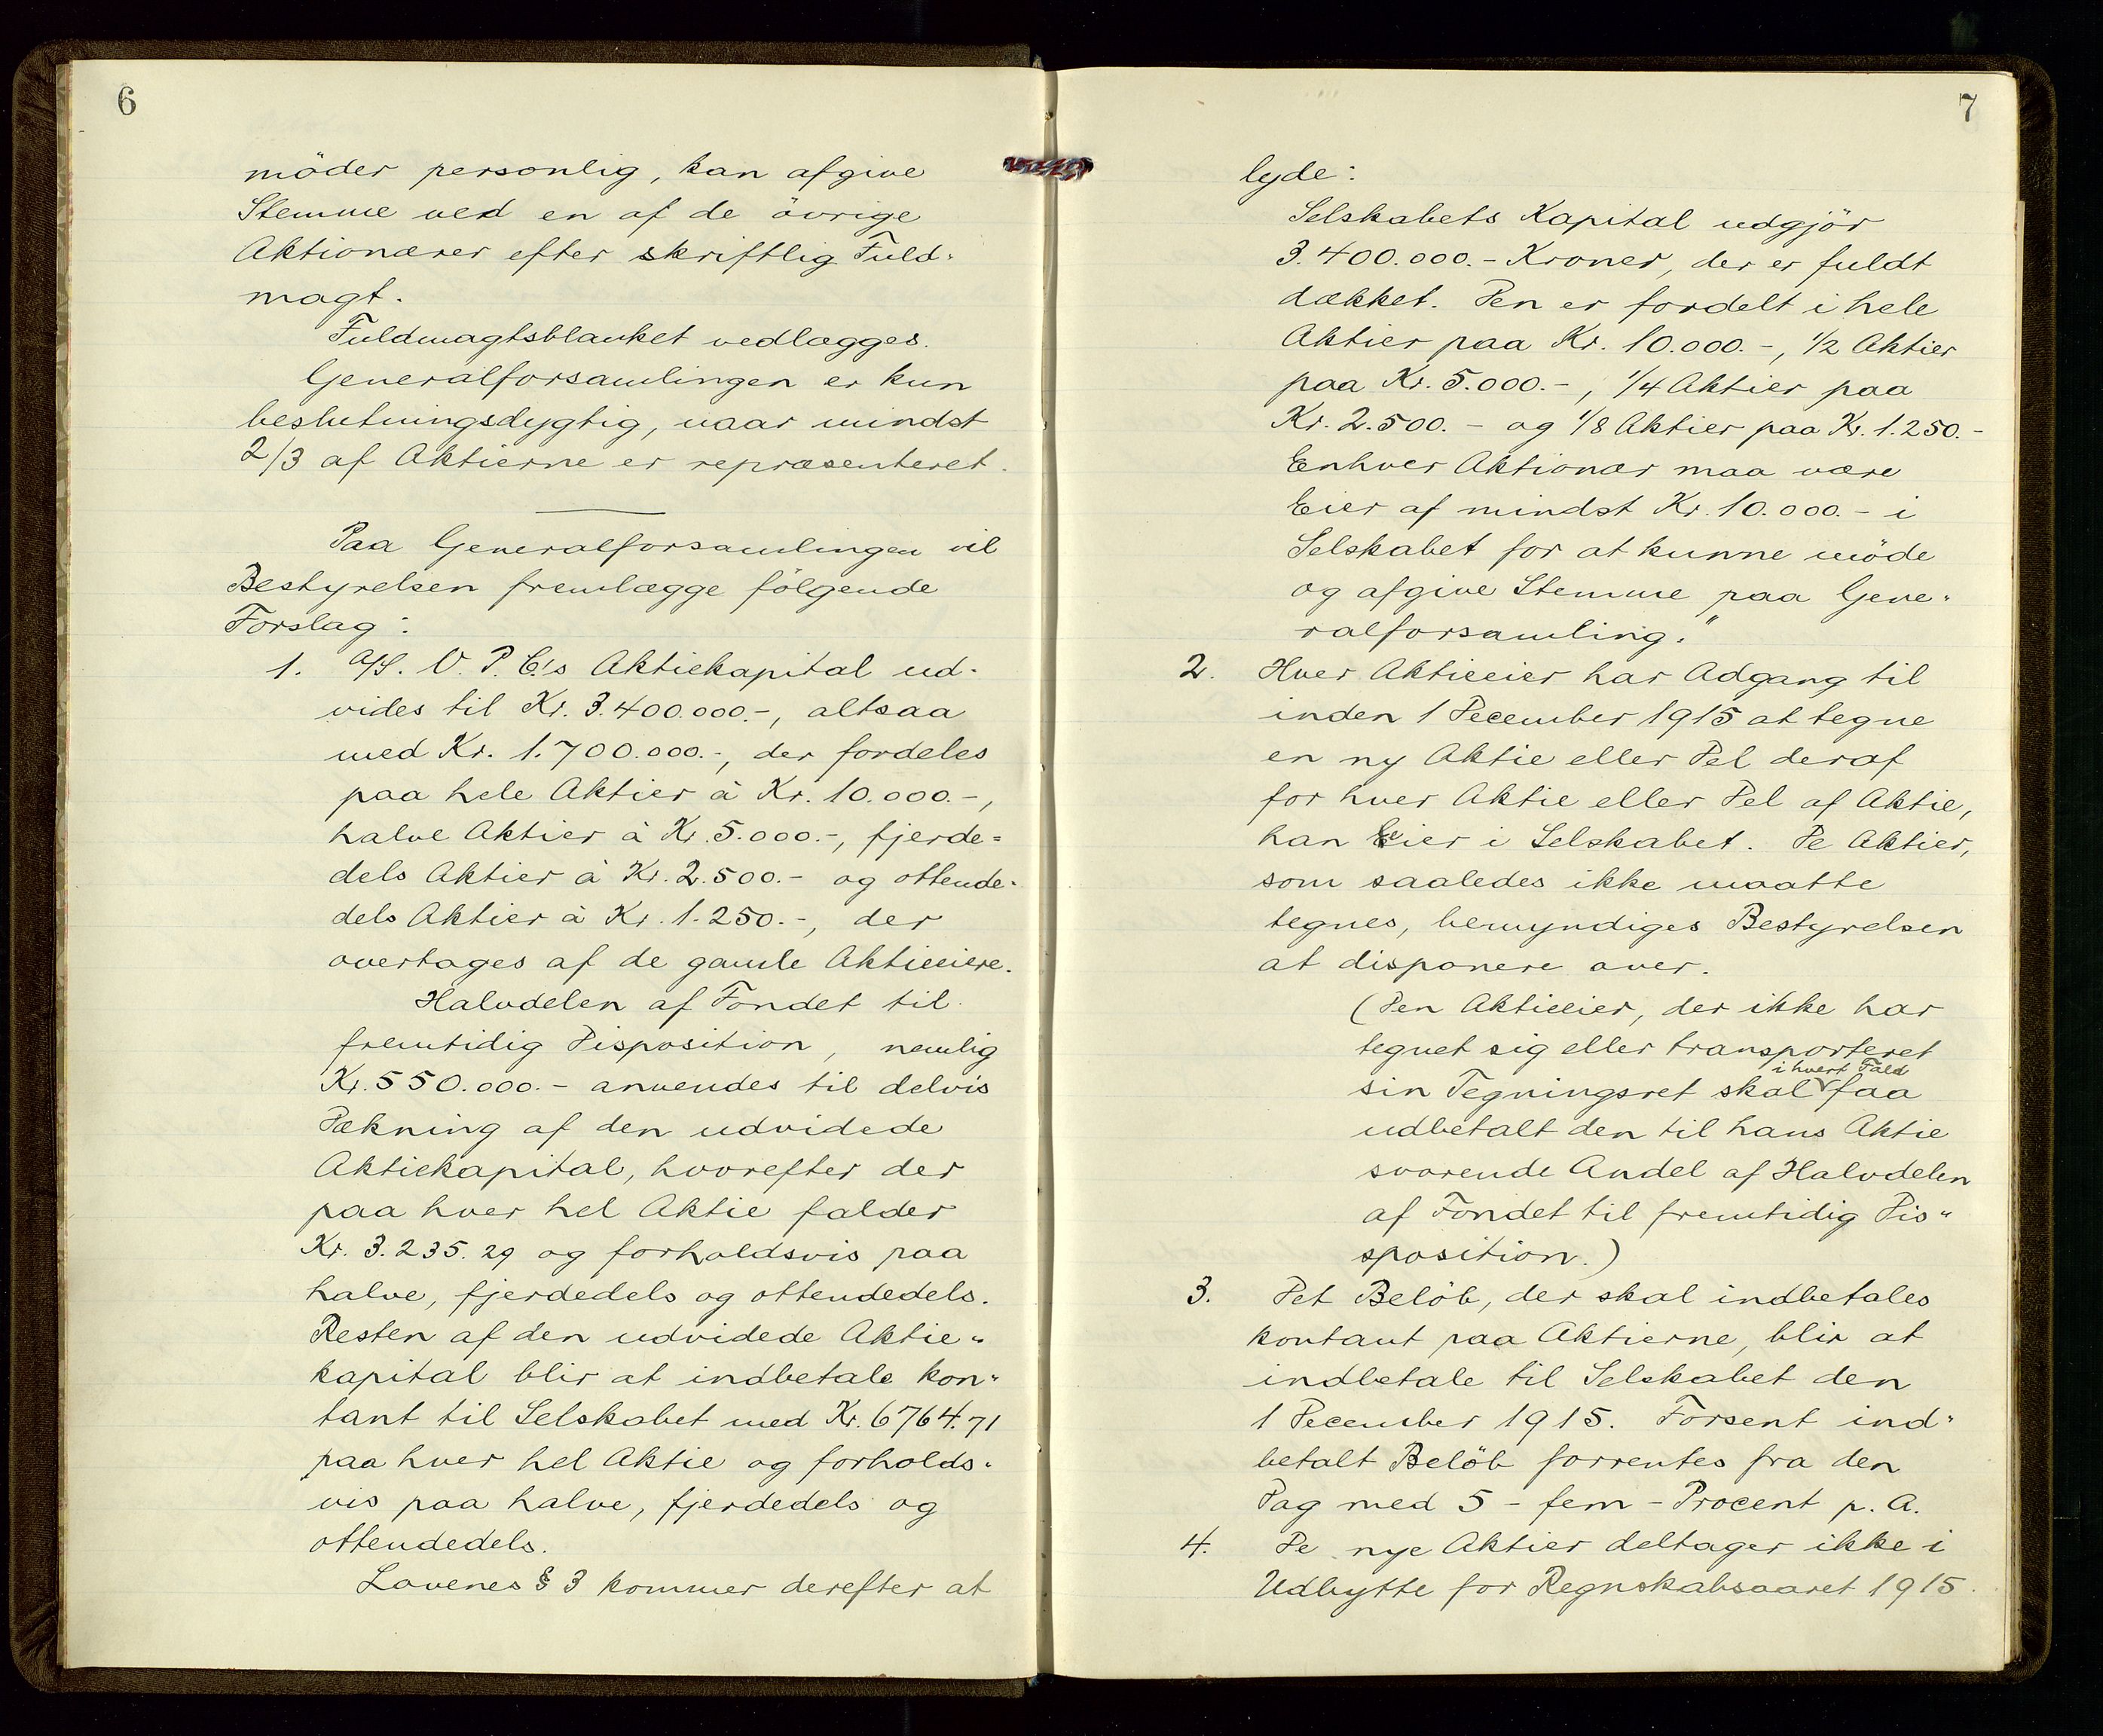 6
möder personlig, kan afgive
Stemme ved en af de övrige
Aktionærer efter skriftlig Fuld-
magt.
Fuldmagtsblanket vedlægges.
Generalforsamlingen er kun
beslutningsdygtig, naar mindst
2/3 af Aktierne er repræsenteret.
Paa Generalforsamlingen vil
Bestyrelsen fremlægge fölgende
Forslag:
1. A/S. V. P. C!s Aktiekapital ud-
vides til Kr. 3.400.000.-, altsaa
med Kr. 1.700.000.-, der fordeles
paa hele Aktier à Kr. 10.000.-,
halve Aktier à Kr. 5.000.-, fjerde=
dels Aktier à Kr. 2.500.- og ottende-
dels Aktier à Kr. 1.250.-, der
overtages af de gamle Aktieeiere.
Halvdelen af Fondet til
fremtidig Disposition, nemlig
Kr. 550.000.- anvendes til delvis
Dækning af den udvidede
Aktiekapital, hvorefter der
paa hver hel Aktie falder
Kr. 3.235.29 og forholdsvis paa
halve, fjerdedels og ottendedels.
Resten af den udvidede Aktie-
kapital blir at indbetale kon-
tant til Selskabet med Kr. 6764.71
paa hver hel Aktie og forholds-
vis paa halve, fjerdedels og
ottendedels.
Lovenes § 3 kommer derefter at
7
lyde:
Selskabets Kapital udgjör
3.400.000.- Kroner, der er fuldt
dækket. Den er fordelt i hele
Aktier paa Kr. 10.000.-, 1/2 Aktier
paa Kr. 5.000.-, 1/4 Aktier paa
Kr. 2.500.- og 1/8 Aktier paa Kr. 1.250.-
Eenhver Aktionær maa være
Eier af mindst Kr. 10.000.- i
Selskabet for at kunne möde
og afgive Stemme paa Gene-
ralforsamling."
2. Hver Aktieeier har Adgang til
inden 1 December 1915 at tegne
en ny Aktie eller Del deraf
for hver Aktie eller Del af Aktie,
han Eier i Selskabet. De Aktier,
som saaledes ikke maatte
tegnes, bemyndiges Bestyrelsen
at disponere over.
(Den Aktieeier, der ikke har
tegnet sig eller transporteret
i hvert Fald
sin Tegningsret skal faa
udbetalt den til hans Aktie
svarende Andel af Halvdelen
af Fondet til fremtidig Dis-
sposition.)
3. Det Belöb, der skal indbetales
kontant paa Aktierne, blir at
indbetale til Selskabet den
1 December 1915. Forsent ind-
betalt Belöb forrentes fra den
Dag med 5 - fem - Procent p. A.
4. De nye Aktier deltager ikke i
Udbytte for Regnskabsaaret 1915.